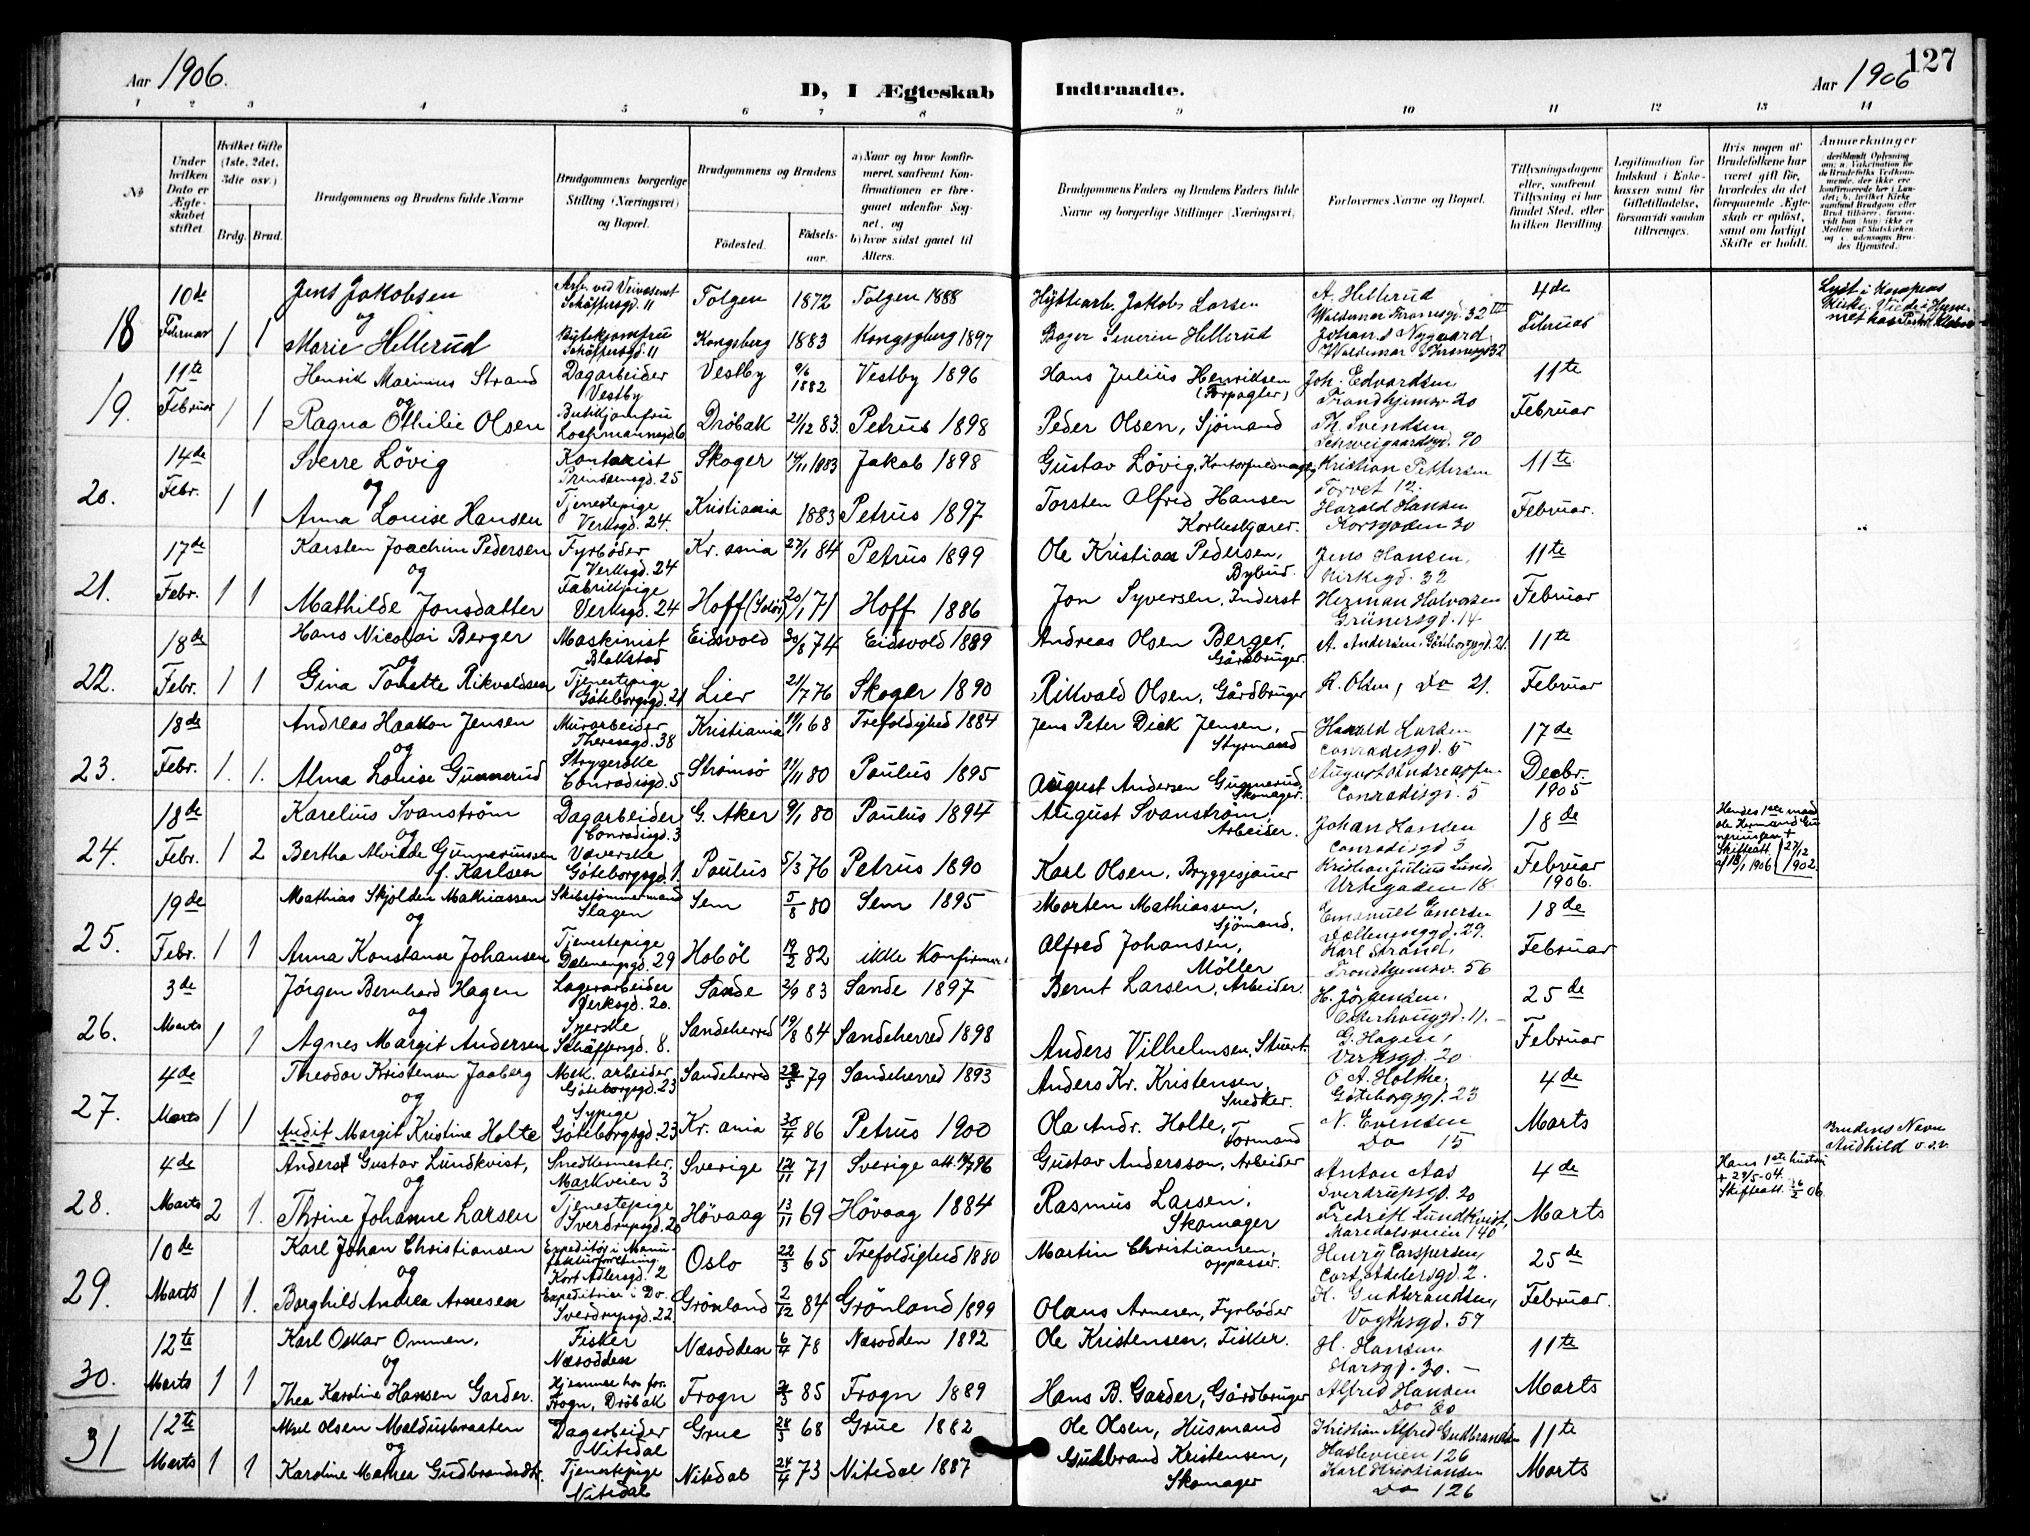 Aar 1906.
D, I Ægteskab Indtraadte.
Aar 1906
127
1 2 3 4 5 6 7 8 9 10 11 12 13 14
No
Under hvilken Dato er Ægteskabet stiftet.
Hvilket Gifte (1ste, 2det, 3die osv.)
Brdg. Brud.
Brudgommens og Brudens fulde Navne
Brudgommens borgerlige Stilling (Næringsvei) og Bopæl.
Brudgommens og Brudens
Fødested. Fødselsaar.
a) Naar og hvor konfirmeret, saafremt Konfirmationen er foregaaet udenfor Sognet, og
b) hvor sidst gaaet til Alters.
Brudgommens Faders og Brudens Faders fulde Navne og borgerlige Stillinger (Næringsvei)
Forlovernes Navne og Bopæl.
Tillysningsdagene eller, saafremt Tillysning ei har fundet Sted, efter hvilken Bevilling.
Legitimation for Indskud i Enkekassen samt for Giftetilladelse, forsaavidt saadan tiltrænges.
Hvis nogen af Brudefolkene har været gift før, hvorledes da det foregaaende Ægteskab er opløst, samt om lovligt Skifte er holdt.
Anmærkninger
18 10de Februar 1 1
Jens Jakobsen
og
Marie Hellerud
Schäffersgd. 11
Schäffersgd. 11
Tolgen 1872 Tolgen 1888
Kongsberg 1883 Kongsberg 1897
Hyttearb. Jakob Larsen
Bager Severin Hellerud
A. Hellerud
4de Februar
19. 11te Februar 1 1
Henrik Marinius Strand
og
Ragna Othilie Olsen
Dagarbeider
Vestby
Vestby 9/6 1882 Vestby 1896
Drøbak 21/12 83. Petrus 1898
Hans Julius Henriksen
(Forpagter)
Peder Olsen, Sjömand
Joh. Edvardsen
Trondhjemsv. 20
Th. Svendsen
Schweigaardsgd. 90
11te Februar
20. 14de Febr. 1 1
Sverre Lövig
og
Anna Louise Hansen
Kontorist
Tjenestepige
Verksgd. 24.
Skoger 14/11 1883 Jakob 1898
Kristiania 1883 Petrus 1897
Gustav Lövig,
Torsten Alfred Hansen
Kristian Pettersen
Torvet 12.
Harald Hansen
Korsgaden 30
11te Februar.
21. 17de Febr. 1 1
Karsten Joachim Pedersen
og
Mathilde Jonsdatter
Fyrbøder
Verksgd. 24
Fabrikpige
Verksgd. 24
Kr. ania 27/1 84 Petrus 1899
Hoff (Solør) 20/1 71 Hoff 1886
Ole Kristian Pedersen,
Bybud.
Jon Syversen, Inderst
Jens Hansen,
Kirkegd. 32
Herman Halvorsen
Grünersgd. 14
11te Februar
22. 18de Febr. 1 1
Hans Nicolai Berger
og
Gina Tonette Rikvaldsen
Maskinist
Blakstad
Tjenestepige
Göteborgsgd. 21
Eidsvold 30/8 74 Eidsvold 1889
Lier 21/7 76 Skoger 1890
Andreas Olsen Berger,
Gårdbruger.
Rikvald Olsen, Gårdbruger
A. Andersen, Göteborgsgd. 21.
R. Olsen, Do 21.
11te Februar
23. 18de Febr. 1. 1.
Andreas Haakon Jensen
og
Alma Louise Gunnerud
Murarbeider
Theresegd. 38
Strygerske
Conradisgd. 5
Kristiania 19/1 68 Trefoldighed 1884
Strømsø 21/11 80 Paulus 1895
Jens Peter Dick Jensen,
Styrmand
August Andersen Gunnerud,
Skomager.
Harald Larsen
Conradisgd. 5
Conradisgd. 5
17de Decbr. 1905
24. 18de Febr. 1 2
Karelius Svanstrøm
og
Bertha Alvilde Gunneriussen
f. Karlsen
Dagarbeider
Conradisgd. 3
Væverske
Göteborgsgd. 1.
G. Aker 9/1 80 Paulus 1894
Paulus 5/3 76 Petrus 1890
August Svanstrøm,
Arbeider.
Karl Olsen, Bryggesjauer
Johan Hansen
Conradisgd 3
Kristian Julius Lund,
Urtegaden 18
18de Februar 1906.
Hendes 1ste mand
Ole Hermand Gunneriussen +
27/12 1902.
Skifteatt. af 18/1 1906
25. 19de Febr. 1 1
Mathias Skjolden Mathiassen
og
Anna Konstanse Johansen
Skibstömmermand
Slagen
Tjenestepige
Dælenenggd. 29
Sem 5/8 80 Sem 1895
Hobøl 19/2 82 ikke Konfirmeret
Morten Mathiassen,
Sjömand.
Alfred Johansen,
Möller
Emanuel Enersen
Dælenenggd. 29.
Karl Strand,
Trondhjemsv. 56
18de Februar
26. 3de Marts 1 1
Jørgen Bernhard Hagen
og
Agnes Margit Andersen
Lagerarbeider
Verksgd. 20.
Syerske
Schäffersgd. 8.
Sande 2/9 83 Sande 1897
Sandeherred 19/8 84 Sandeherred 1898
Bernt Larsen, Arbeider.
Anders Vilhelmsen, Stuert.
H. Jörgensen,
Osterhausgd. 11.
G. Hagen,
Verksgd. 20
25de Februar
27. 4de Marts 1 1
Theodor Kristensen Jaaberg
og
Audit Margit Kristine Holte
Mek. arbeider
Göteborgsgd. 23
Sypige
Göteborgsgd. 23
Sandeherred 79 Sandeherred 1893
Kr. ania 30/4 86 Petrus 1900
Anders Kr. Kristensen,
Snedker.
Ola Andr. Holte,
Formand
O. A. Holthe,
Göteborgsgd. 23
N. Evensen
Do 15
4de Marts
Brudens Navn
Audhild o.s.v.
28. 4de Marts 2 1.
Anders Gustav Lundkvist,
og
Thrine Johanne Larsen
Snedkermester,
Markveien 3
Tjenestepige
Sverdrupsgd. 20
Sverige 12/11 71 Sverige
Hövaag 13/11 69 Hövaag 1884
Gustav Andersson, Arbeider
Rasmus Larsen,
Skomager
Anton Aas
Sverdrupsgd. 20
Fredrik Lundkvist,
Maridalsveien 140
4de Marts
Hans 1ste hustru
+ 29/5-04.
Skifteatt. 26/2 06.
29. 10de Marts 1 1.
Karl Johan Christiansen
og
Borghild Andrea Arnesen
Expeditör i Manufakturforretning.
Kort Adlersgd. 2
Expeditrice i Do.
Sverdrupsgd. 22.
Oslo 22/5 65 Trefoldighed 1880
Grønland 2/12 84 Grønland 1899
Martin Christiansen,
oppasser.
Olaus Arnesen, Fyrbøder
Henry Carspersen,
Cort Adelersgd. 2.
H. Gudbrandsen,
Vogtsgd. 57
25de Februar.
30. 12te Marts 1 1
Karl Oskar Ommen,
og
Thea Karoline Hansen Garder.
Fisker
Næsodden
Hjemme hos for.
Frogn, Drøbak
Næsodden 6/4 78 Næsodden 1892
Frogn 85 Frogn 1889
Ole Kristensen, Fisker.
Hans B. Garder, Gårdbruger
H. Hansen
Alfred Hansen
11te Marts
31 12te Marts 1 1
Aksel Olsen Meldusbraaten
og
Karoline Mathea Gudbrandsdtr.
Dagarbeider
Nitedal
Tjenestepige
Nitedal
Grue 28/3 68 Grue 1882
Nitedal 24/4 73 Nitedal 1887
Ole Olsen, Husmand
Gudbrand Kristensen,
Skomager
Kristian Alfred Gudbrandsen
Hasleveien 126
Karl Kristiansen
Do 126
11te Marts